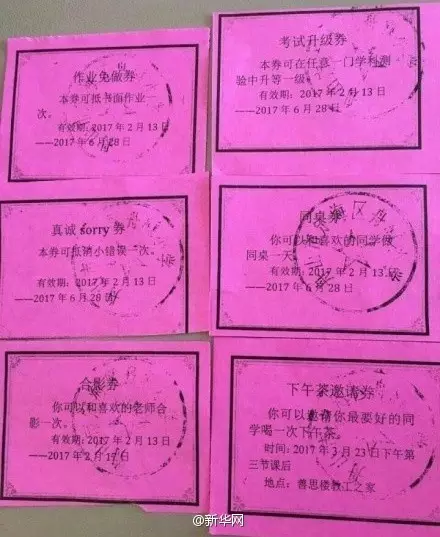 作业免做券
本券可抵书面作业一
次。
有效期：2017 年 2 月 13 日
——2017 年 6 月 28 日
考试升级券
本券可在任意一门学科测
验中升等一级。
有效期：2017 年 2 月 13 日
——2017 年 6 月 28 日
真诚 sorry 券
本券可抵消小错误一次。
有效期：2017 年 2 月 13 日
——2017 年 6 月 28 日
同桌券
你可以和喜欢的同学做
同桌一天。
有效期：2017 年 2 月 13 日
——2017 年 6 月 28 日
合影券
你可以和喜欢的老师合
影一次。
有效期：2017 年 2 月 13 日
——2017 年 2 月 17 日
下午茶邀请券
你可以邀请你最要好的同
学喝一次下午茶。
时间：2017 年 3 月 23 日下午第
三节课后
地点：善思楼教工之家
@新华网